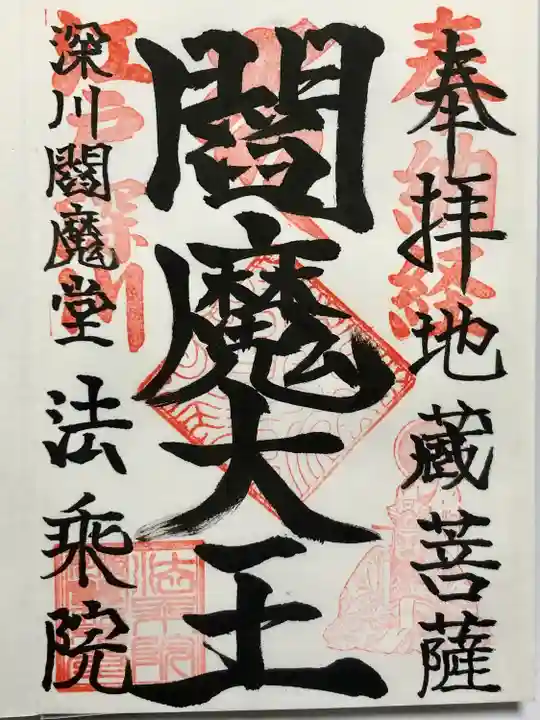 奉拝地蔵菩薩
奉納経
閻魔大王
深川閻魔堂法乗院
江戸深川
法乗院